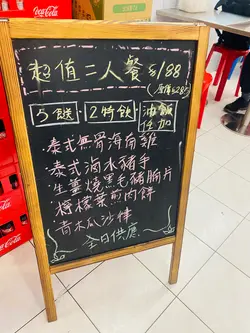 Coca-Cola
超值二人餐 $188
(原價$285)
5餸 · 2特飲 油飯任加
泰式無骨海南雞
泰式滷水豬手
生薑燒黑毛豬腩片
檸檬葉煎肉餅
青木瓜沙律
全日供應
Coca-Cola
Coca-Cola